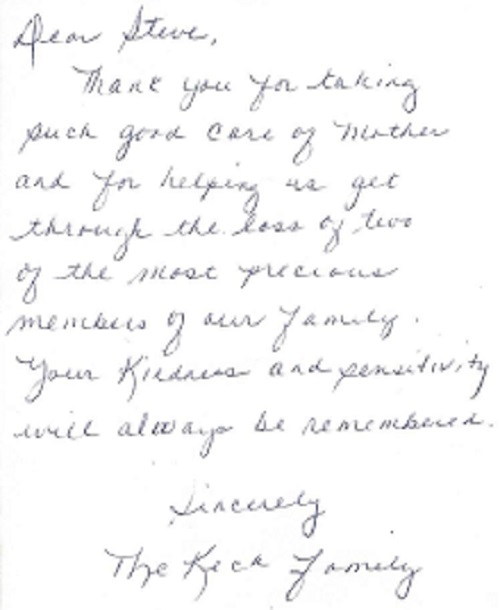 Dear Steve,
Thank you for taking
such good care of Mother
and for helping us get
through the loss of two
of the most precious
members of our family.
Your Kindness and sensitivity
will always be remembered.
Sincerely
The Keck Family